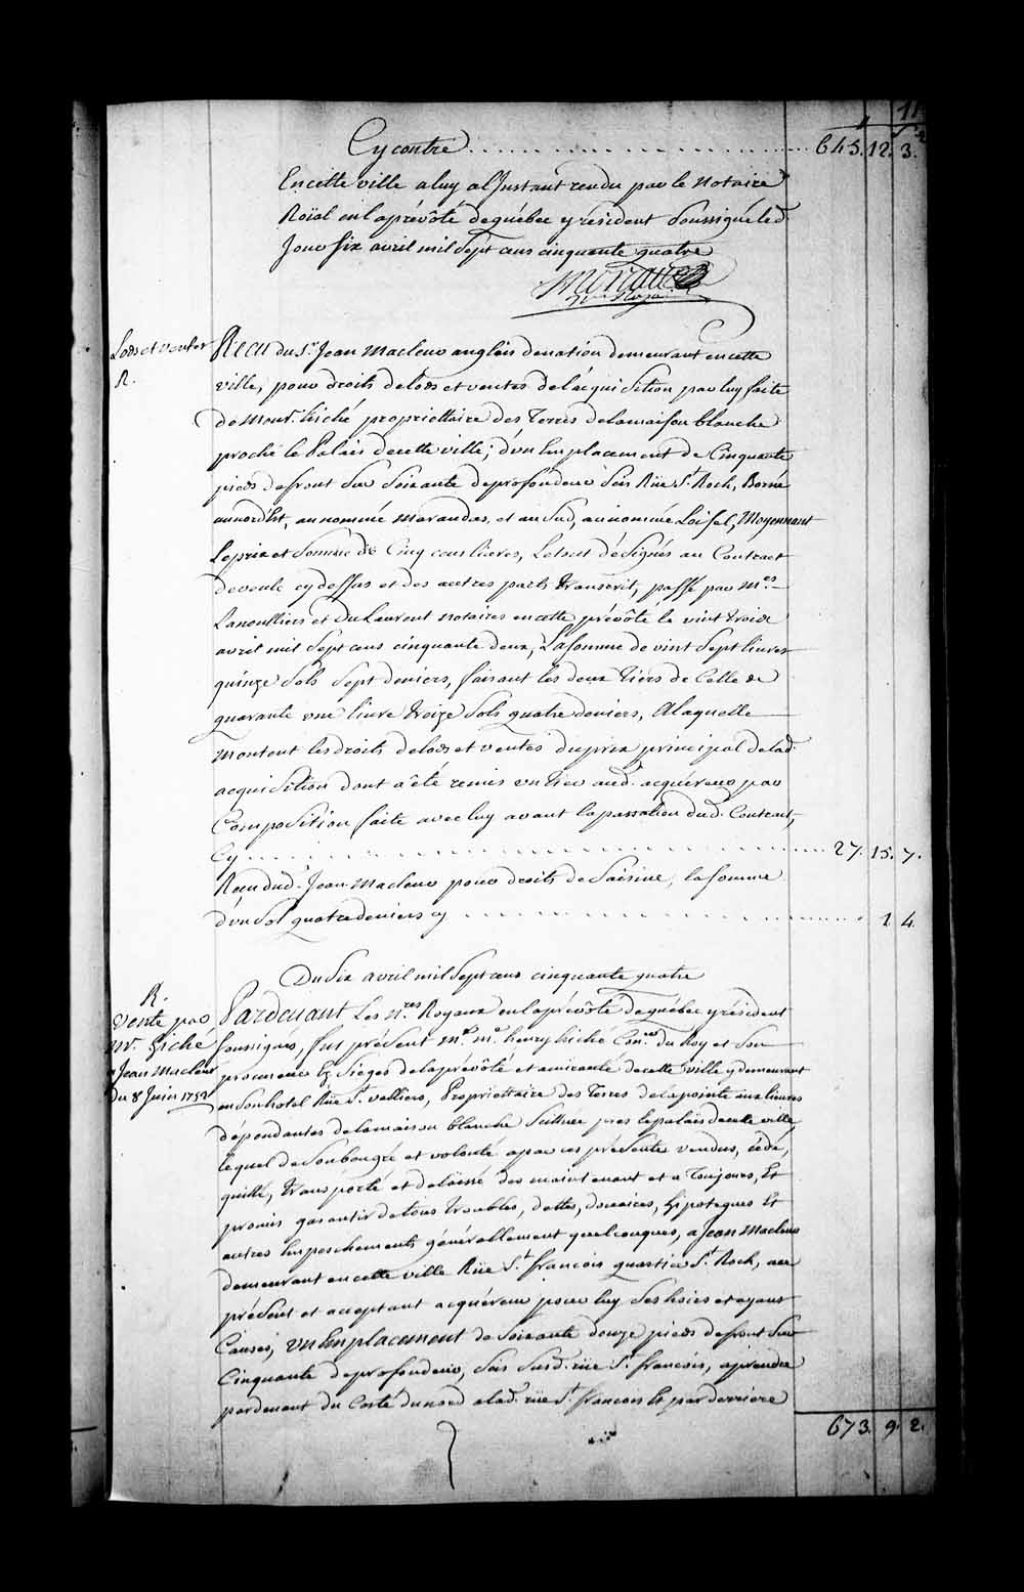 11
Cy contre . . . . . . . . . . 645. 12. 3.
En cette ville a luy a l'Instant rendu par le Notaire
Roïal en la prévôté de québec y resident Soussigné led.
Jour six avril mil Sept cens cinquante quatre
Lods et ventes
R.
Recu du Sr. Jean Macleur anglois de nation demeurant en cette
ville, pour droits de lods et ventes de l'acquisition par luy faite
de Monsr. hiché propriettaire des Terres de la maison blanche
proche le Palais de cette ville; d'un Emplacement de Cinquante
pieds de front sur Soixante de profondeur Scis Rüe St. Roch, Borné
au nord'Est, au nommé Marandas, et au Sud, au nommé Loisel, Moyennant
Le prix et Somme de Cinq cens livres, Le tout désigné au Contract
de vente cy dessus et des autres parts transcrit, passé par Mes.
Lanoulliers et Du Laurent notaires en cette prévôté le vint trois
avril mil Sept cens cinquante deux, La Somme de vint Sept livres
quinze Sols Sept deniers, faisant les deux tiers de Celle de
quarante une livre treize Sols quatre deniers, A laquelle
montent les droits de lods et ventes du prix principal de lad.
acquisition dont a été remis un tier aud. acquéreur par
Composition faite avec luy avant la passation dud. Contract,
Cy . . . . . . . . . . 27. 15. 7.
Recu dud. Jean Macleur pour droits de Saisine, la somme
d'un Sol quatre deniers cy . . . . . . . . . . 1. 4.
Du Six avril mil Sept cens cinquante quatre
R.
Vente par
Mr. hiché
a Jean Macleur
du 8 Juin 1752
Pardevant Les Nres. Royaux en la prévôté de québec y résident
soussignés, fut présent Me. henry hiché Conser. du Roy et Son
procureur Es Sieges de la prévôté et amirauté de cette ville y demeurant
en Son hotel Rüe St. vallier, Propriettaire des Terres de la pointe aux lievres
dépendantes de la maison blanche Scittuée pres le palais de cette ville
Lequel de Son bon gré et volonté a par ces présentes vendu, cédé,
quitté, transporté et delaissé des maintenant et a Toujours, Et
promis garantir de tous troubles, dettes, douaires, hipoteques Et
autres Empeschements généralement quelconques, a Jean Macleur
demeurant en cette ville Rüe St. francois quartier St. Roch, a ce
présent et acceptant acquéreur pour luy Ses hoirs et ayans
Causes, un Emplacement de Soixante douze pieds de front Sur
Cinquante de profondeur, Scis Susd. rüe St. francois, a prendre
pardevant du Costé du nord a lad. rüe St. francois Et par derriere
673. 9. 2.